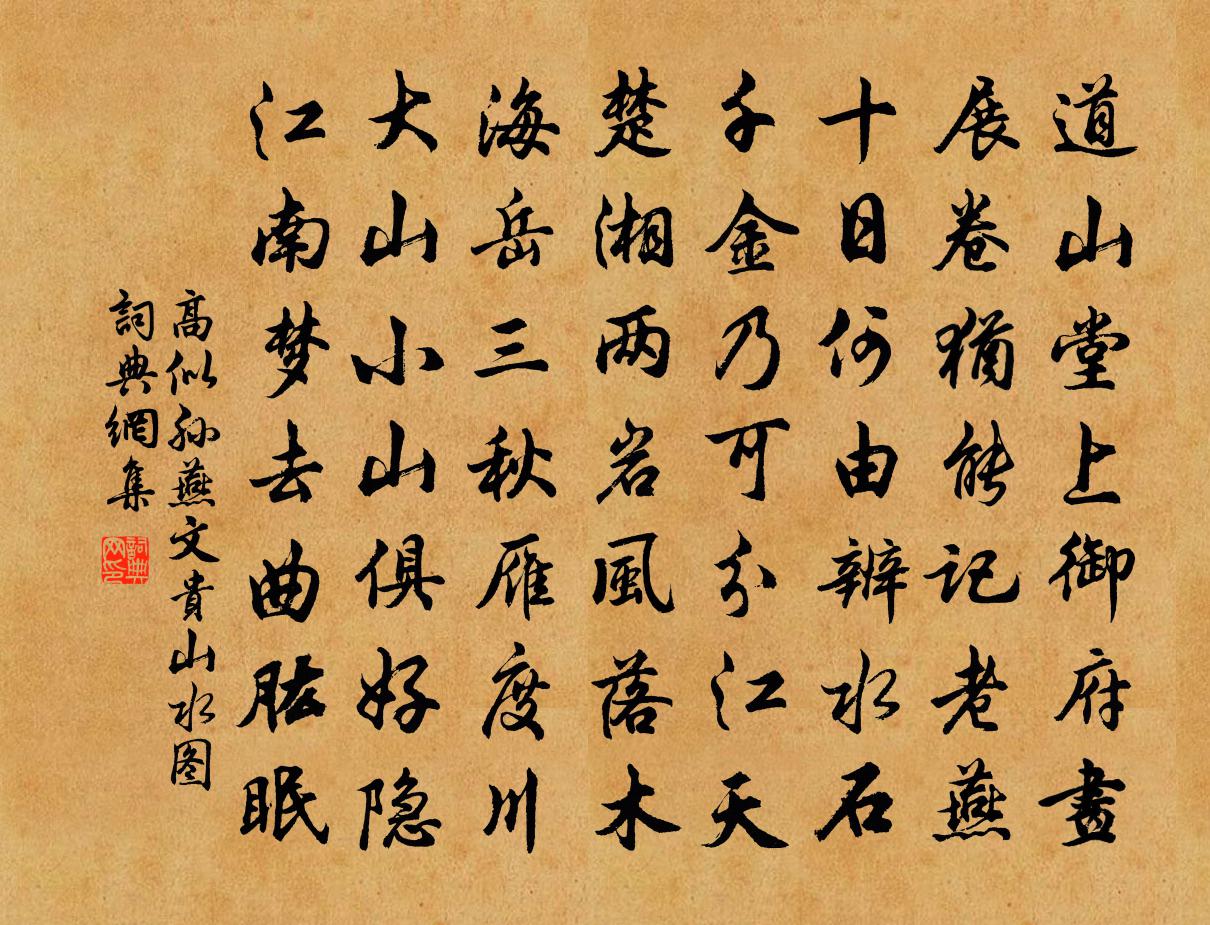 道山堂上御府畫
展卷猶能记老燕
十日何由辨水石
千金乃可分江天
楚湘两岩風落木
海岳三秋雁度川
大山小山俱好隐
江南梦去曲肱眠
高似孙燕文貴山水图
詞典網集
詞典网印